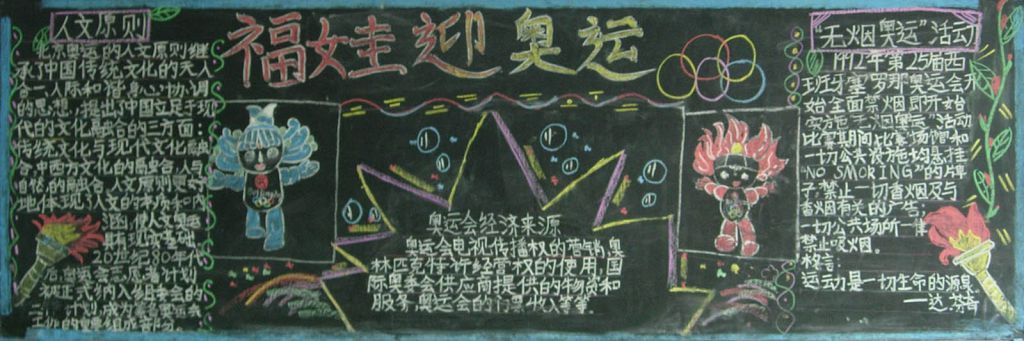 福娃迎奥运
人文原则
北京奥运的人文原则继
承了中国传统文化的天人
合一人际和谐身心协调
的思想，提出中国立足于现
代的文化融合的三方面：
传统文化与现代文化融
中西方文化的融合人与
自然的融合人文原则更好
地体现了人文的本质和内
涵使人文奥运
20世纪80年代
后奥运会志愿者计划
被正式纳入组委会的
计划成为
奥运会经济来源
奥运会电视传播权的营销奥
林匹克标识经营权的使用,国
际奥委会供应商提供的物资和
服务奥运会的门票收入等等.
"无烟奥运"活动
1912年第25届西
班牙塞罗那奥运会开
始全面禁烟即开始
实施"无烟奥运"活动
比赛期间比赛场馆和
一切公共设施均悬挂
"NO SMOKING"的牌
子禁止一切香烟及与
香烟有关的广告,
一切公共场所一律
禁止吸烟.
格言:
运动是一切生命的源泉
—达.芬奇